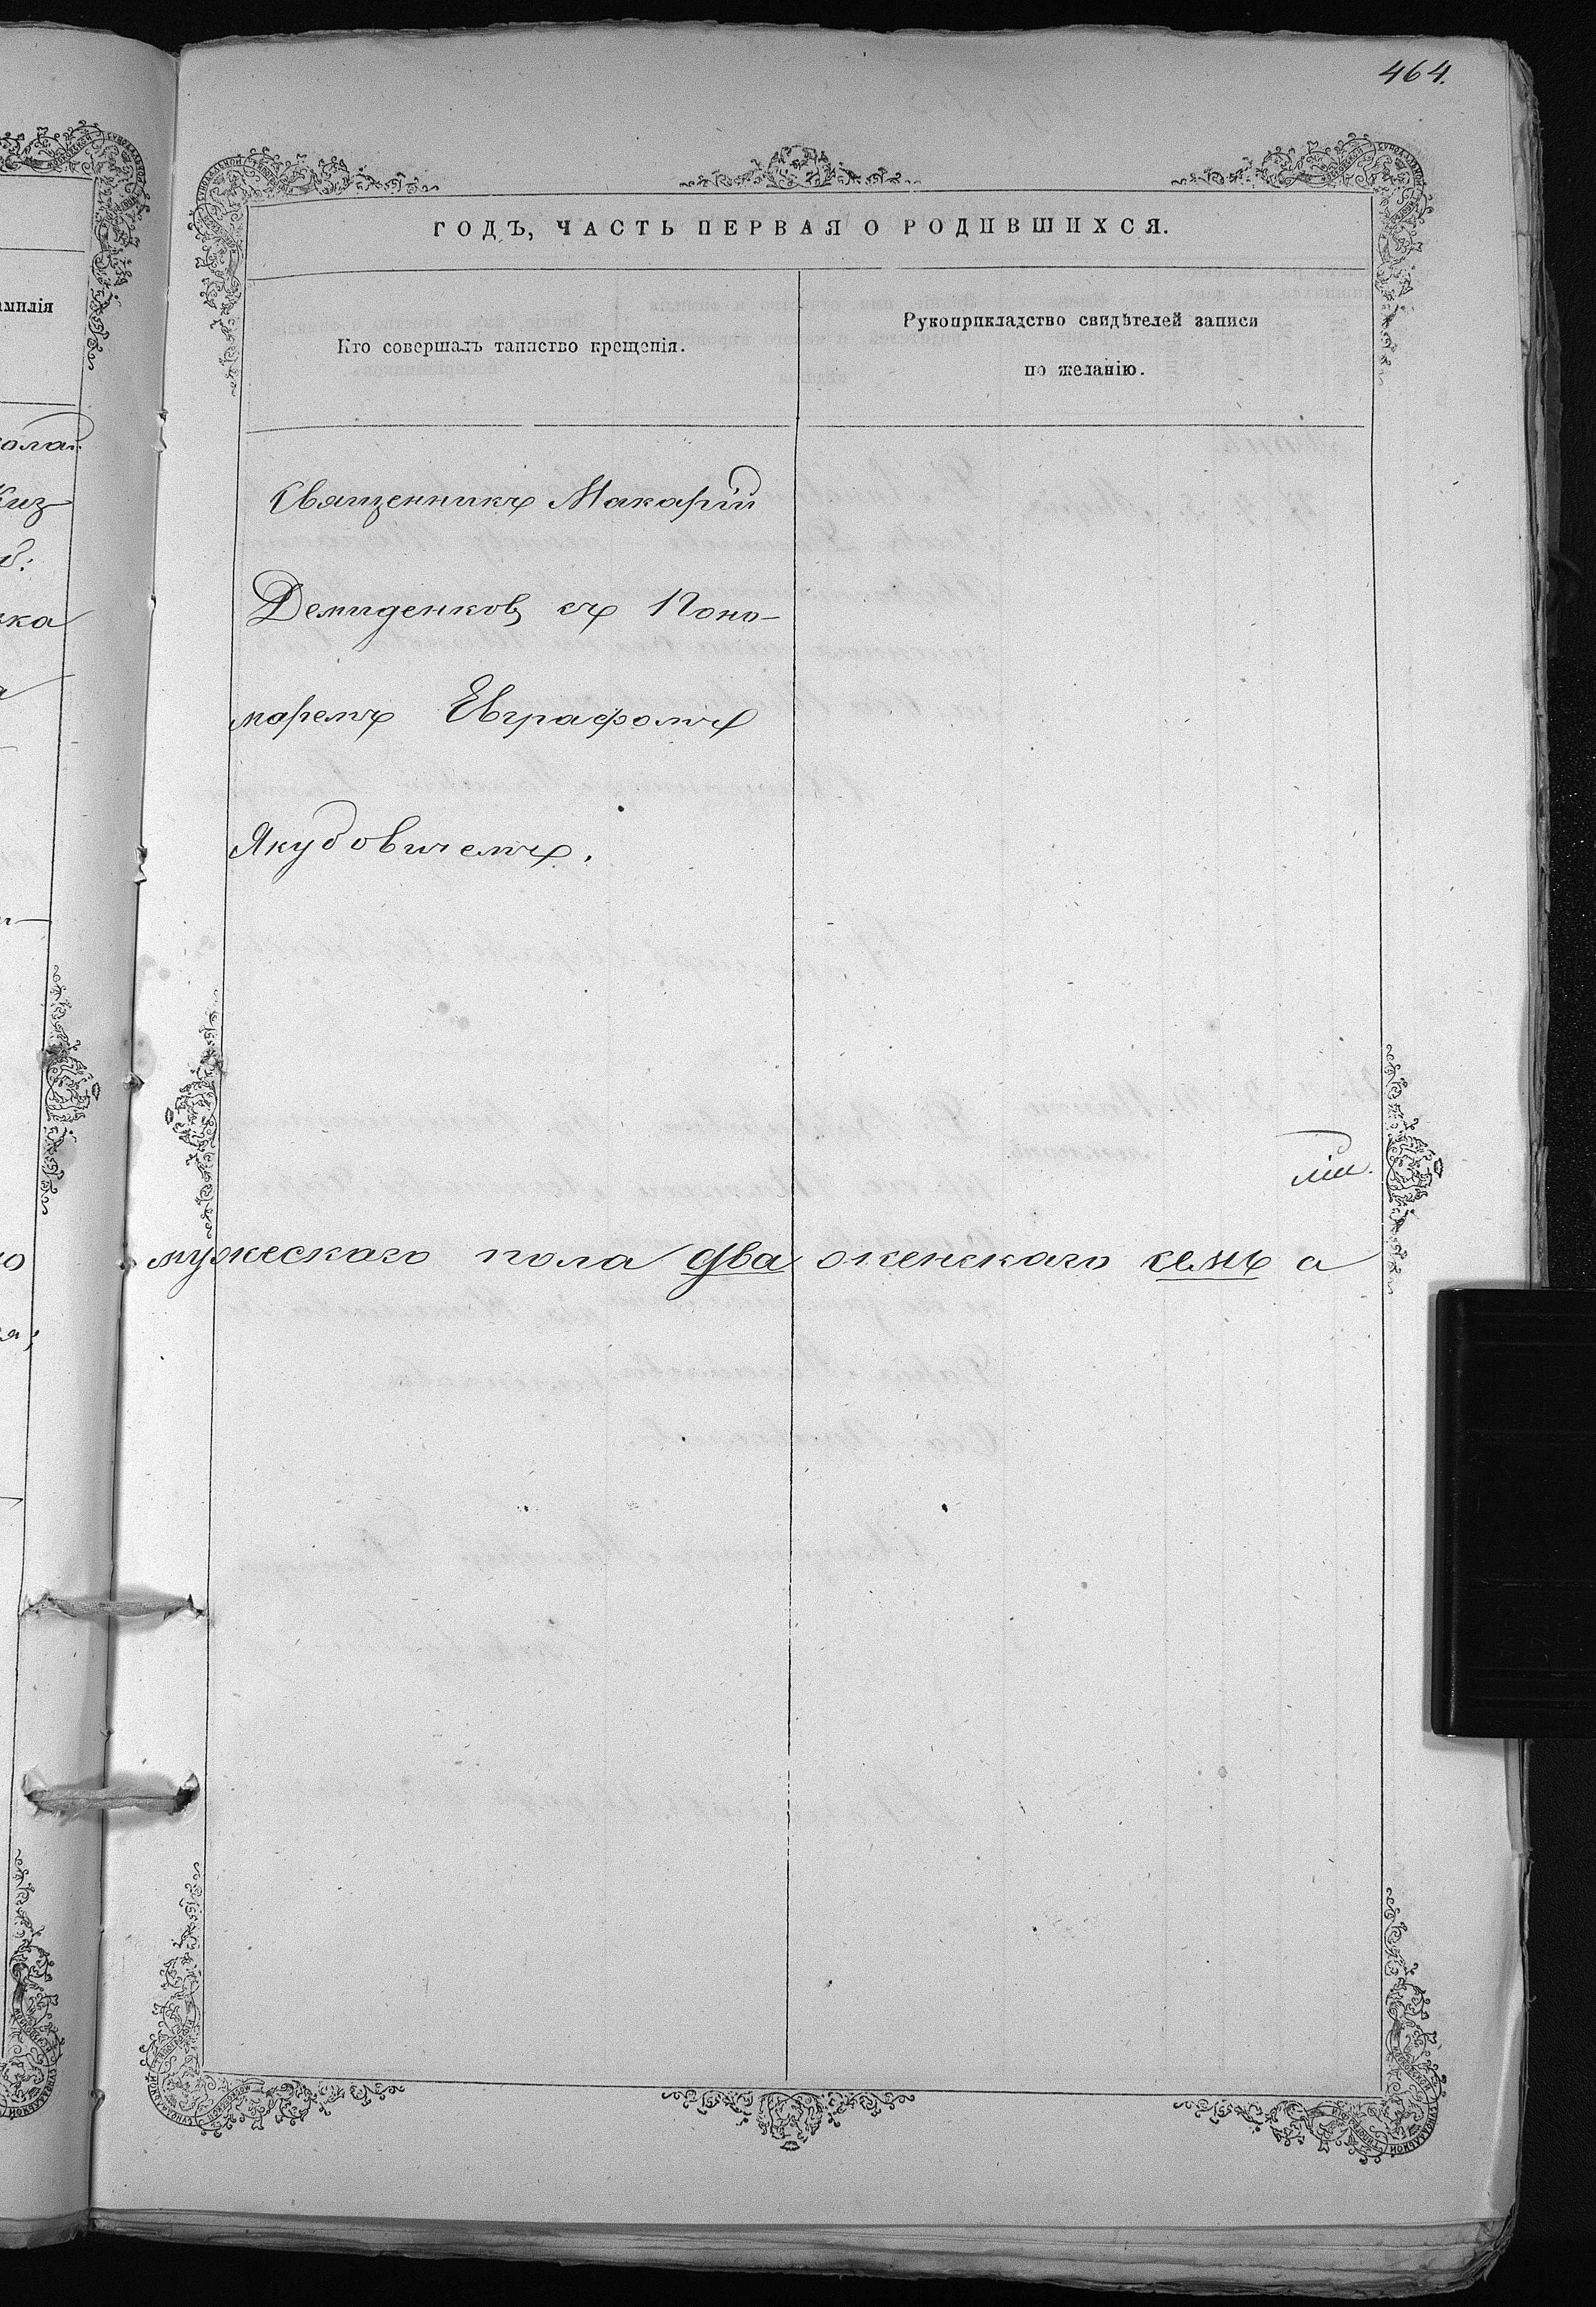 464.
ГОДЪ, ЧАСТЬ ПЕРВАЯ О РОДИВШИХСЯ.
Кто совершалъ таинство крещенія.
Рукоприкладство свидѣтелей записи
по желанію.
Священникъ Макарій
Демиденковъ съ Поно-
маремъ Евграфомъ
Якубовичемъ.
мужескаго пола два женскаго семь а